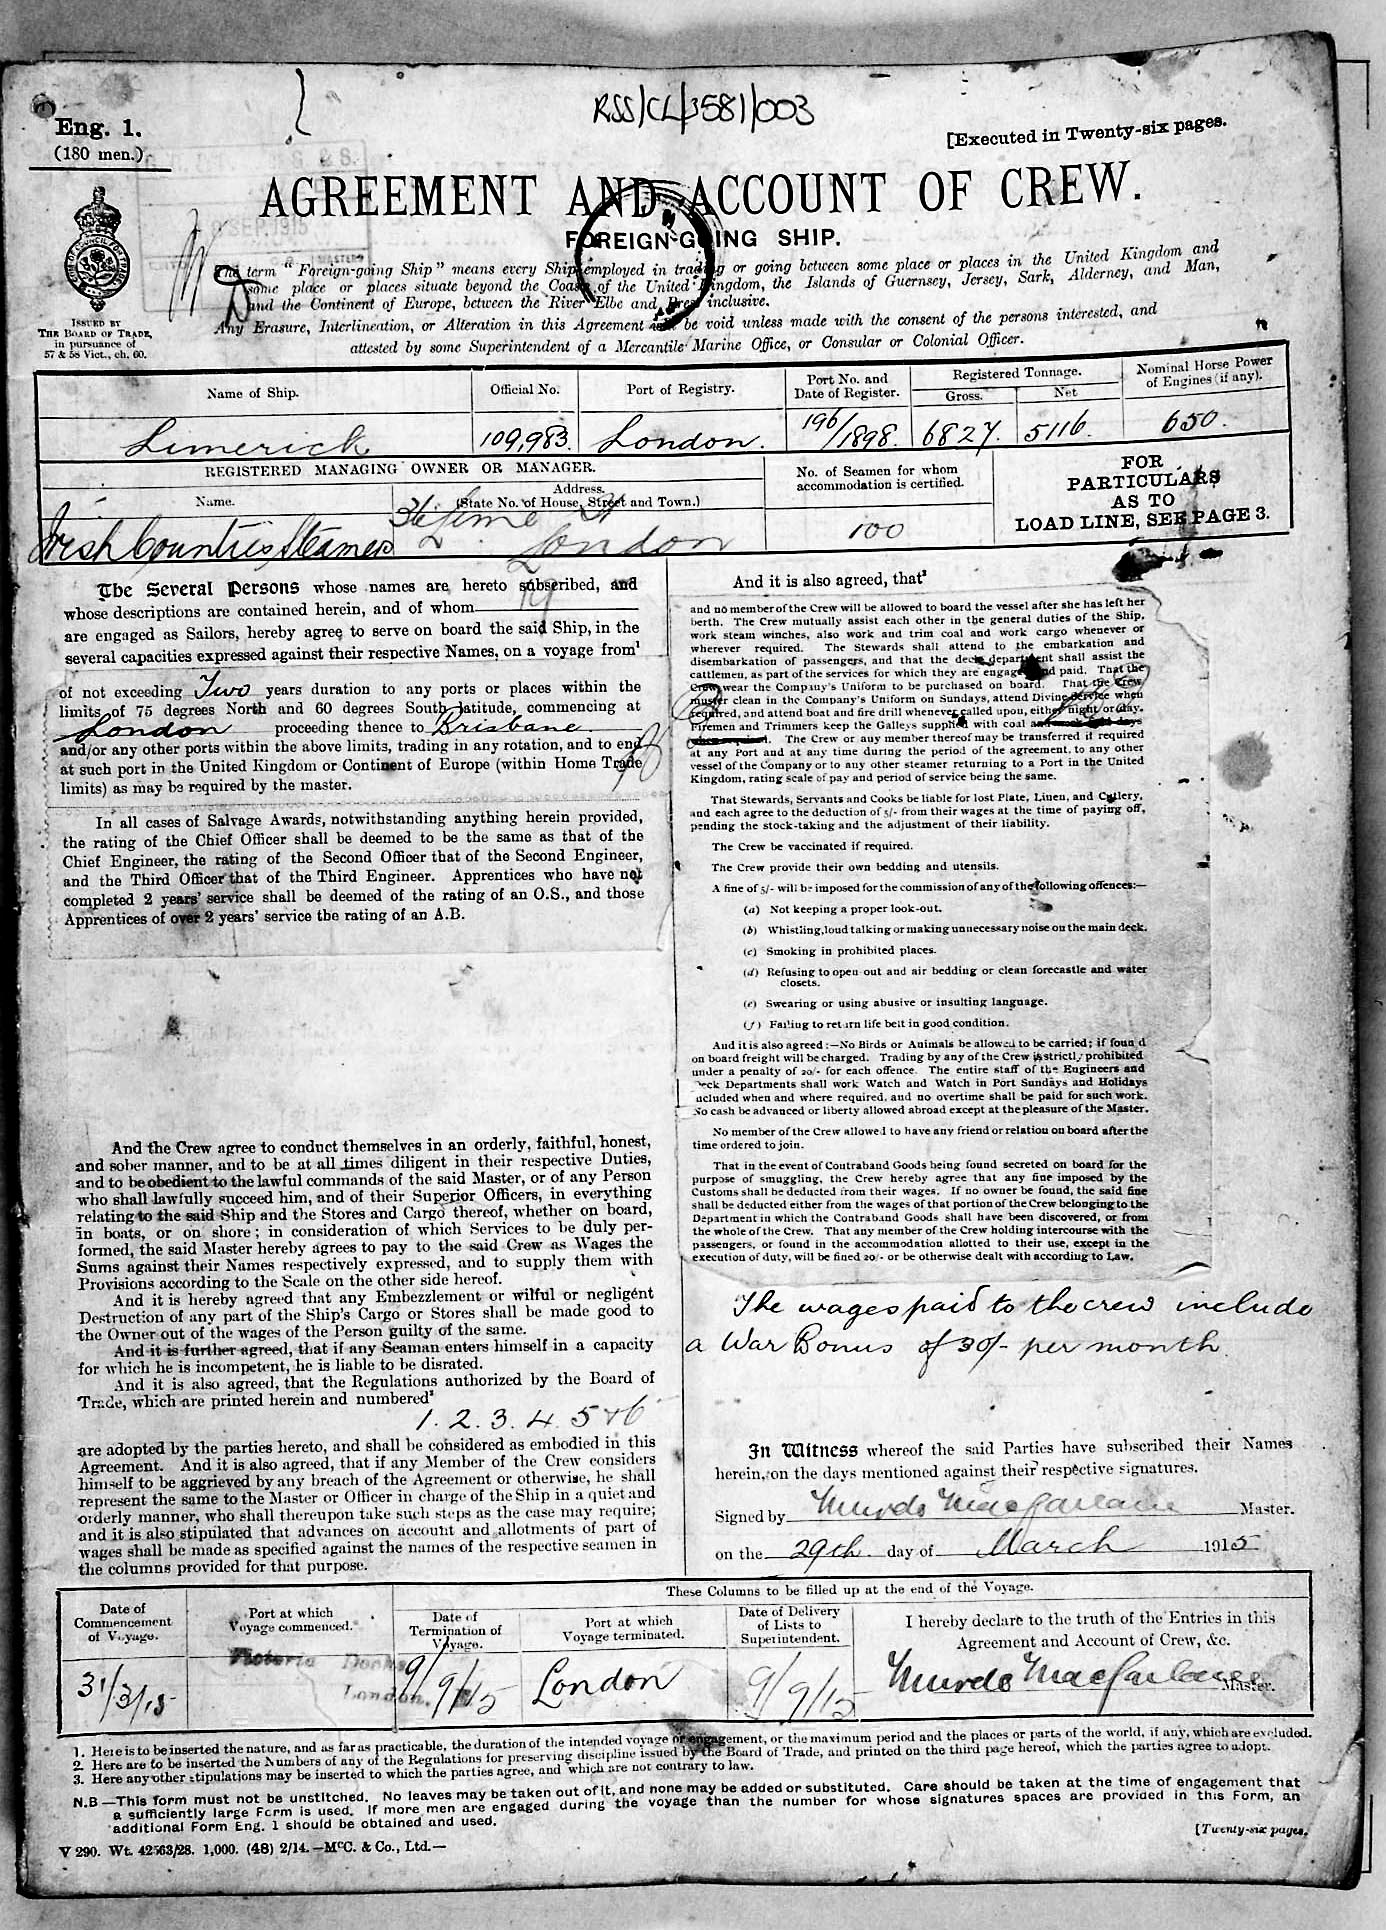 RSS/CL/3581/003
Eng. 1.
(180 men.)
[Executed in Twenty-six pages.
AGREEMENT AND ACCOUNT OF CREW.
FOREIGN-GOING SHIP.
SEP 1915
ISSUED BY
THE BOARD OF TRADE,
in pursuance of
57 & 58 Vict., ch. 60.
The term "Foreign-going Ship" means every Ship employed in trading or going between some place or places in the United Kingdom and
some place or places situate beyond the Coasts of the United Kingdom, the Islands of Guernsey, Jersey, Sark, Alderney, and Man,
and the Continent of Europe, between the River Elbe and Brest inclusive.
Any Erasure, Interlineation, or Alteration in this Agreement will be void unless made with the consent of the persons interested, and
attested by some Superintendent of a Mercantile Marine Office, or Consular or Colonial Officer.
Name of Ship. Official No. Port of Registry. Port No. and Date of Register. Registered Tonnage. Gross. Net Nominal Horse Power of Engines (if any).
Limerick 109,983. London. 196/1898. 6827. 5116. 650.
REGISTERED MANAGING OWNER OR MANAGER.
Name. Address. (State No. of House, Street and Town.)
No. of Seamen for whom accommodation is certified.
FOR
PARTICULARS
AS TO
LOAD LINE, SEE PAGE 3.
Irish Counties Steamers 36 Lime St London 100
The Several Persons whose names are hereto subscribed, and
whose descriptions are contained herein, and of whom 19
are engaged as Sailors, hereby agree to serve on board the said Ship, in the
several capacities expressed against their respective Names, on a voyage from¹
of not exceeding Two years duration to any ports or places within the
limits of 75 degrees North and 60 degrees South latitude, commencing at
London proceeding thence to Brisbane.
and/or any other ports within the above limits, trading in any rotation, and to end
at such port in the United Kingdom or Continent of Europe (within Home Trade
limits) as may be required by the master.
In all cases of Salvage Awards, notwithstanding anything herein provided,
the rating of the Chief Officer shall be deemed to be the same as that of the
Chief Engineer, the rating of the Second Officer that of the Second Engineer,
and the Third Officer that of the Third Engineer. Apprentices who have not
completed 2 years' service shall be deemed of the rating of an O.S., and those
Apprentices of over 2 years' service the rating of an A.B.
And the Crew agree to conduct themselves in an orderly, faithful, honest,
and sober manner, and to be at all times diligent in their respective Duties,
and to be obedient to the lawful commands of the said Master, or of any Person
who shall lawfully succeed him, and of their Superior Officers, in everything
relating to the said Ship and the Stores and Cargo thereof, whether on board,
in boats, or on shore; in consideration of which Services to be duly per-
formed, the said Master hereby agrees to pay to the said Crew as Wages the
Sums against their Names respectively expressed, and to supply them with
Provisions according to the Scale on the other side hereof.
And it is hereby agreed that any Embezzlement or wilful or negligent
Destruction of any part of the Ship's Cargo or Stores shall be made good to
the Owner out of the wages of the Person guilty of the same.
And it is further agreed, that if any Seaman enters himself in a capacity
for which he is incompetent, he is liable to be disrated.
And it is also agreed, that the Regulations authorized by the Board of
Trade, which are printed herein and numbered²
1. 2. 3. 4. 5 + 6
are adopted by the parties hereto, and shall be considered as embodied in this
Agreement. And it is also agreed, that if any Member of the Crew considers
himself to be aggrieved by any breach of the Agreement or otherwise, he shall
represent the same to the Master or Officer in charge of the Ship in a quiet and
orderly manner, who shall thereupon take such steps as the case may require;
and it is also stipulated that advances on account and allotments of part of
wages shall be made as specified against the names of the respective seamen in
the columns provided for that purpose.
And it is also agreed, that³
and no member of the Crew will be allowed to board the vessel after she has left her
berth. The Crew mutually assist each other in the general duties of the Ship,
work steam winches, also work and trim coal and work cargo whenever or
wherever required. The Stewards shall attend to the embarkation and
disembarkation of passengers, and that the deck department shall assist the
cattlemen, as part of the services for which they are engaged and paid. That the
Crew wear the Company's Uniform to be purchased on board. That the Crew
muster clean in the Company's Uniform on Sundays, attend Divine Service when
required, and attend boat and fire drill whenever called upon, either night or day.
Firemen and Trimmers keep the Galleys supplied with coal
The Crew or any member thereof may be transferred if required
at any Port and at any time during the period of the agreement, to any other
vessel of the Company or to any other steamer returning to a Port in the United
Kingdom, rating scale of pay and period of service being the same.
That Stewards, Servants and Cooks be liable for lost Plate, Linen, and Cutlery,
and each agree to the deduction of 5/- from their wages at the time of paying off,
pending the stock-taking and the adjustment of their liability.
The Crew be vaccinated if required.
The Crew provide their own bedding and utensils.
A fine of 5/- will be imposed for the commission of any of the following offences:—
(a) Not keeping a proper look-out.
(b) Whistling, loud talking or making unnecessary noise on the main deck.
(c) Smoking in prohibited places.
(d) Refusing to open out and air bedding or clean forecastle and water
closets.
(e) Swearing or using abusive or insulting language.
(f) Failing to return life belt in good condition.
And it is also agreed:—No Birds or Animals be allowed to be carried; if found
on board freight will be charged. Trading by any of the Crew is strictly prohibited
under a penalty of 20/- for each offence. The entire staff of the Engineers and
Deck Departments shall work Watch and Watch in Port Sundays and Holidays
included when and where required, and no overtime shall be paid for such work.
No cash be advanced or liberty allowed abroad except at the pleasure of the Master.
No member of the Crew allowed to have any friend or relation on board after the
time ordered to join.
That in the event of Contraband Goods being found secreted on board for the
purpose of smuggling, the Crew hereby agree that any fine imposed by the
Customs shall be deducted from their wages. If no owner be found, the said fine
shall be deducted either from the wages of that portion of the Crew belonging to the
Department in which the Contraband Goods shall have been discovered, or from
the whole of the Crew. That any member of the Crew holding intercourse with the
passengers, or found in the accommodation allotted to their use, except in the
execution of duty, will be fined 20/- or be otherwise dealt with according to Law.
The wages paid to the crew include
a War Bonus of 30/- per month
In Witness whereof the said Parties have subscribed their Names
herein, on the days mentioned against their respective signatures.
Signed by Murdo Macfarlane Master.
on the 29th day of March 1915
These Columns to be filled up at the end of the Voyage.
Date of Commencement of Voyage. Port at which Voyage commenced. Date of Termination of Voyage. Port at which Voyage terminated. Date of Delivery of Lists to Superintendent.
I hereby declare to the truth of the Entries in this
Agreement and Account of Crew, &c.
31/3/15 Victoria Docks London. 9/9/15 London 9/9/15 Murdo Macfarlane Master.
1. Here is to be inserted the nature, and as far as practicable, the duration of the intended voyage or engagement, or the maximum period and the places or parts of the world, if any, which are excluded.
2. Here are to be inserted the Numbers of any of the Regulations for preserving discipline issued by the Board of Trade, and printed on the third page hereof, which the parties agree to adopt.
3. Here any other stipulations may be inserted to which the parties agree, and which are not contrary to law.
N.B—This form must not be unstitched. No leaves may be taken out of it, and none may be added or substituted. Care should be taken at the time of engagement that
a sufficiently large Form is used. If more men are engaged during the voyage than the number for whose signatures spaces are provided in this Form, an
additional Form Eng. 1 should be obtained and used.
[Twenty-six pages.
V 290. Wt. 42563/28. 1,000. (48) 2/14.—McC. & Co., Ltd.—